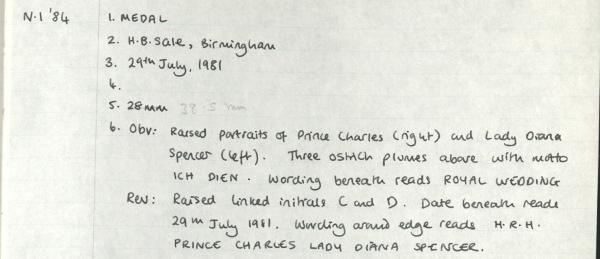 N.1 '84 1. MEDAL
2. H.B. Sale, Birmingham
3. 29th July, 1981
4.
5. 28mm 38.5 mm
6. Obv: Raised portraits of Prince Charles (right) and Lady Diana
Spencer (left). Three ostrich plumes above with motto
ICH DIEN. Wording beneath reads ROYAL WEDDING
Rev: Raised linked initials C and D. Date beneath reads
29th July 1981. Wording around edge reads H.R.H.
PRINCE CHARLES LADY DIANA SPENCER.